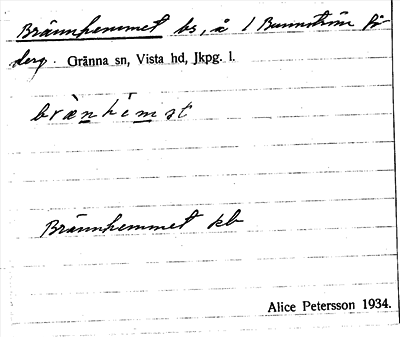 Brännhemmet bs, å 1 Bunnström för
derg. Gränna sn, Vista hd, Jkpg. l.
brænhemət
Brännhemmet kb
Alice Petersson 1934.